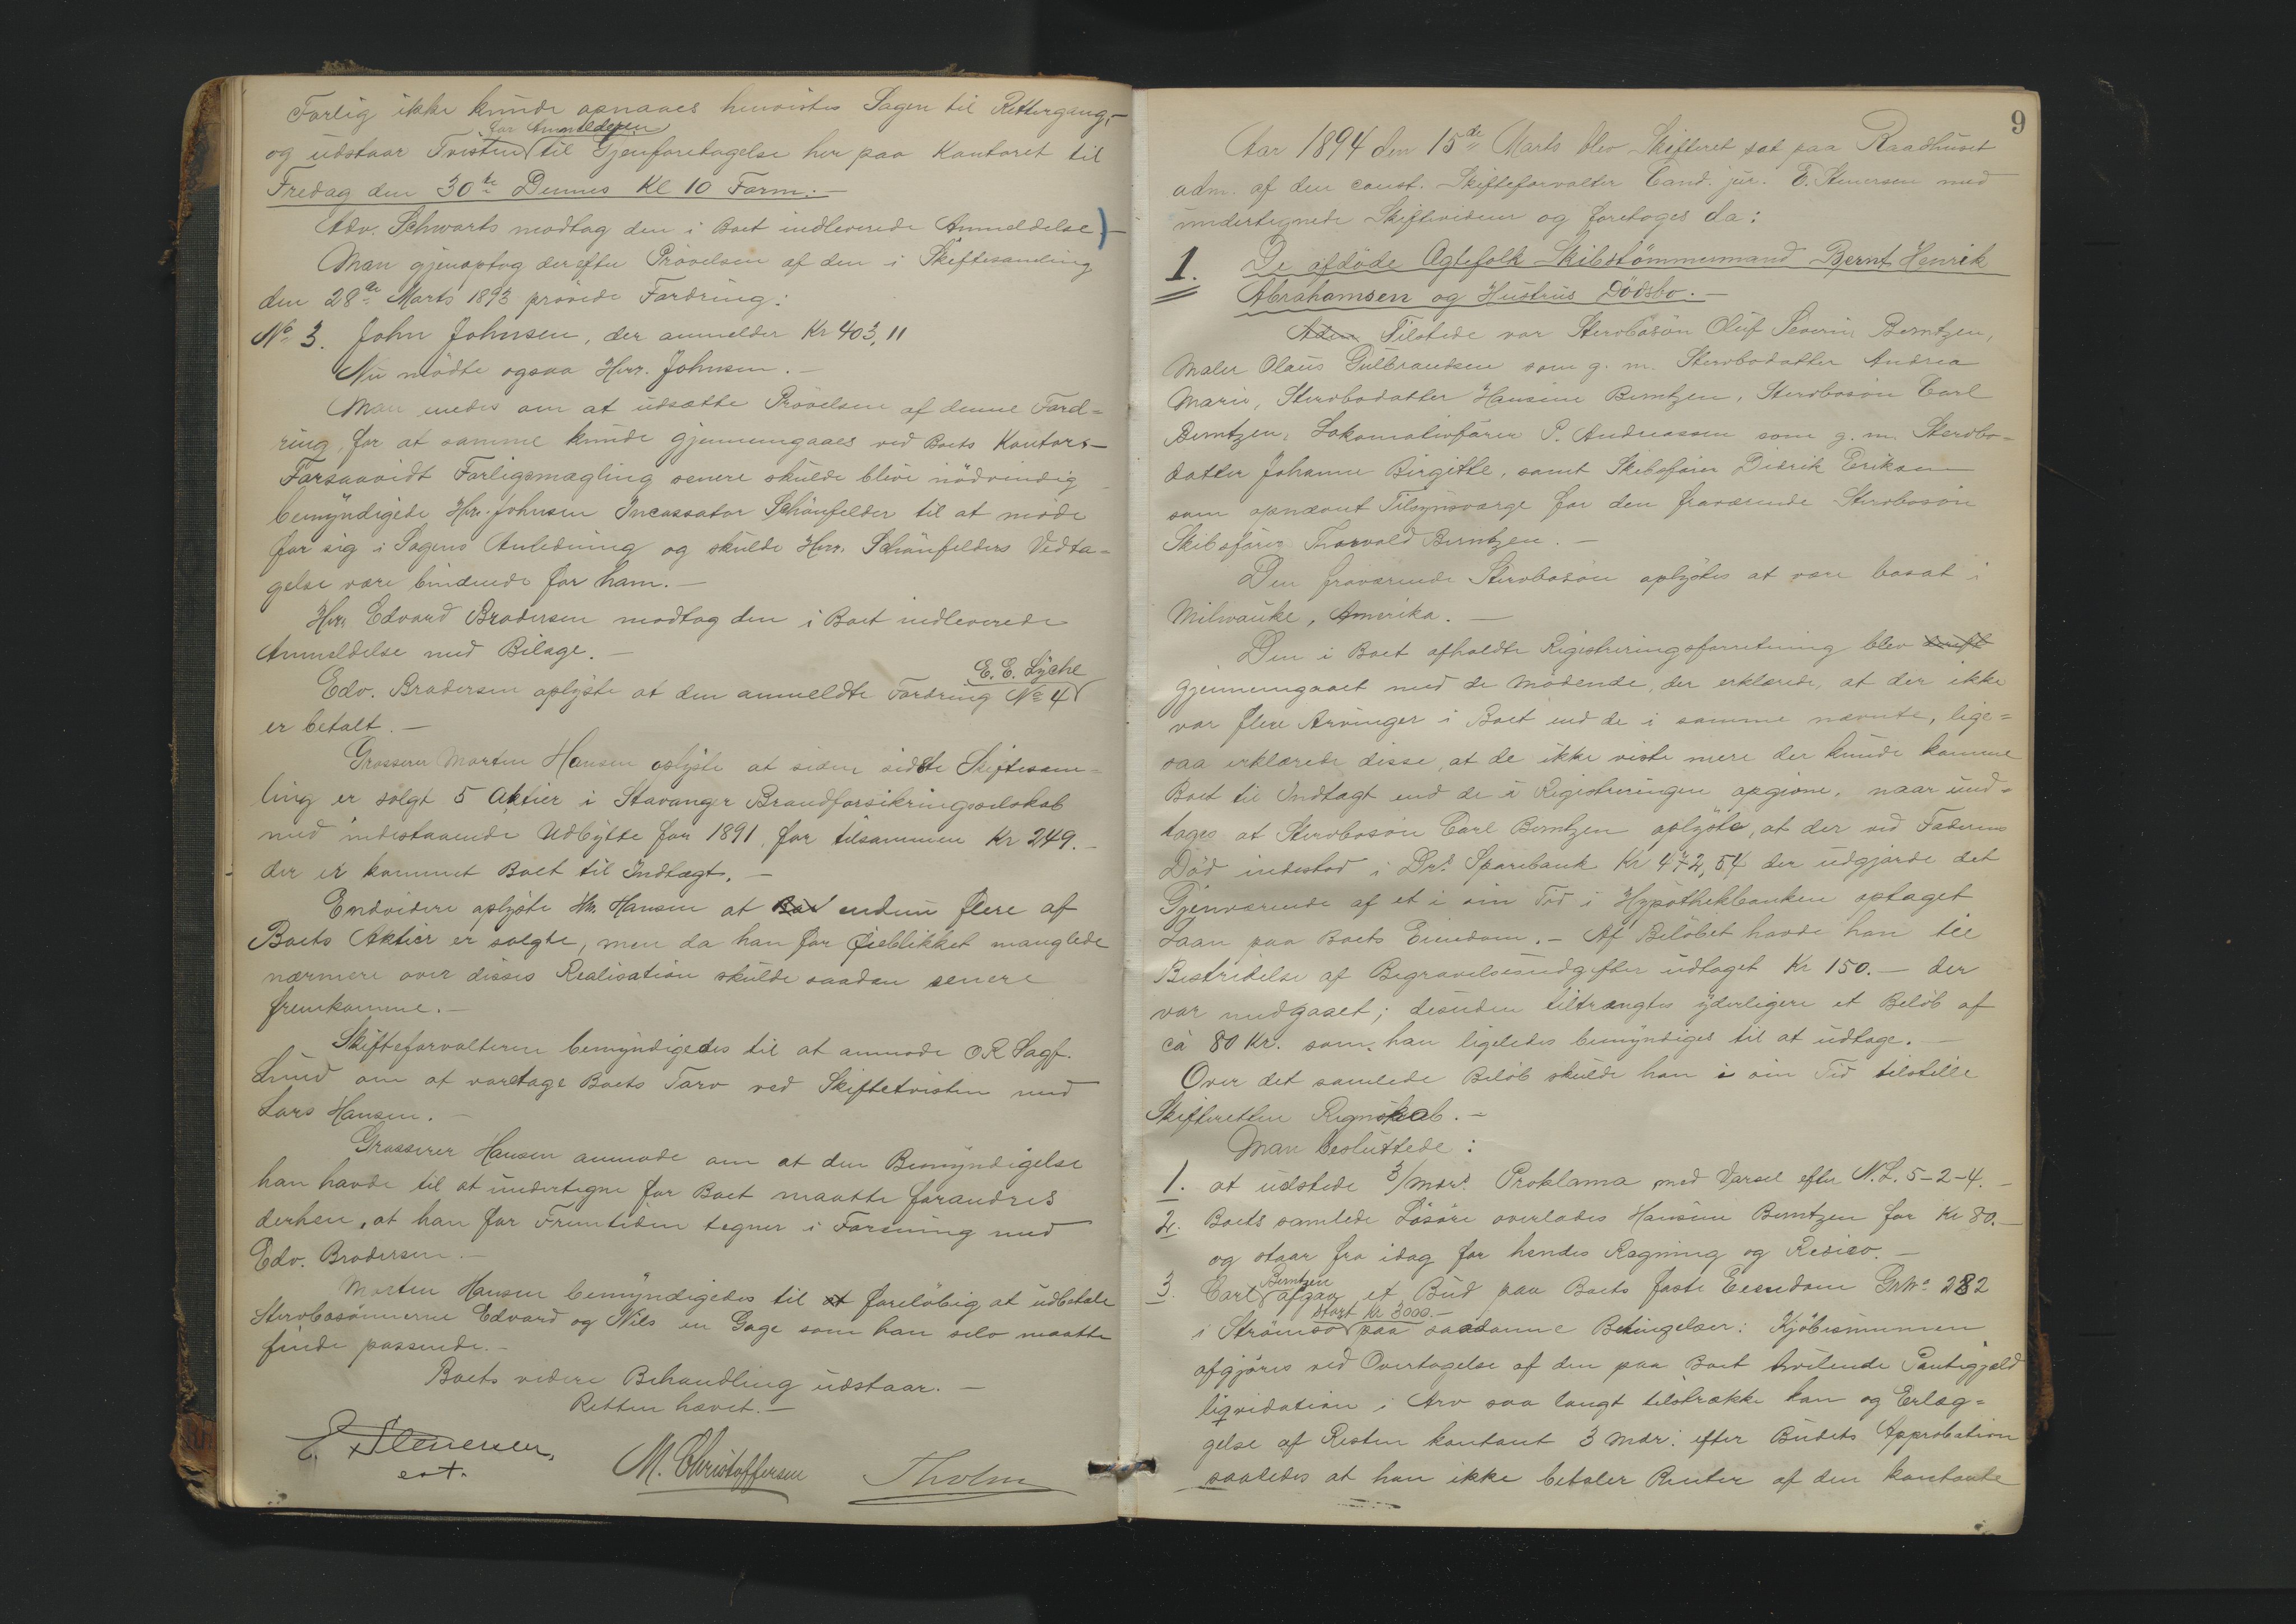 Forlig ikke kunde opnaaes henvistes Sagen til Rettergang,-
for Anmelderen
og udstaar Tvisten til Gjenforetagelse her paa Kontoret til
Fredag den 30te Dennes Kl 10 Form.-
Adv. Schwartz modtog den i Boet indleverede Anmeldelse)-
Man gjenoptog derefter Prövelsen af den i Skiftesamling
den 28de Marts 1893 prövede Fordring:
No 3. John Johnsen, der anmelder Kr 403,11
Nu mödte ogsaa Herr. Johnsen.-
Man enedes om at udsætte Prövelsen af denne Ford=
ring, for at samme kunde gjennemgaaes ved Boets Kontor.-
Forsaavidt Forligsmægling senere skulde blive nödvendig
bemyndigede Herr. Johnsen Incassator Schönfelder til at möde
for sig i Sagens Anledning og skulde Herr. Schönfelders Vedta=
gelse være bindende for ham.-
Herr Edvard Brodersen modtog den i Boet indleverede
Anmeldelse med Bilage.-
E. E. Lyche
Edv. Brodersen oplyste at den anmeldte Fordring No 4
er betalt.-
Grosserer Morten Hansen oplyste at siden sidste Skiftesam=
ling er solgt 5 Aktier i Stavanger Brandforsikringsselskab
med indestaaende Udbytte for 1891, for tilsammen Kr 249.-
der er kommet Boet til Indtægt.-
Endvidere oplyste Hr. Hansen at endnu flere af
Boets Aktier er solgte, men da han for Öieblikket manglede
nærmere over disses Realisation skulde saadan senere
fremkomme.-
Skifteforvalteren bemyndigedes til at anmode O R Sagf.
Lund om at varetage Boets Tarv ved Skiftetvisten med
Lars Hansen.-
Grosserer Hansen anmode om at den Bemyndigelse
han havde til at undertegne for Boet maatte forandres
derhen, at han for Fremtiden tegner i Forening med
Edv. Brodersen.-
Morten Hansen bemyndigedes til at foreløbig at udbetale
Stervbosönnerne Edvard og Nils en Gage som han selv maatte
finde passende.-
Boets videre Behandling udstaar.-
Retten hævet.-
E. Stenersen,
cst.
M. Christoffersen
Tholm
9
Aar 1894 den 15de Marts blev Skifteret sat paa Raadhuset
adm. af den const. Skifteforvalter Cand. jur. E. Stenersen med
undertegnede Skiftevidner og foretoges da:
1. De afdöde Ægtefolk Skibstömmermand Bernt Henrik
Abrahamsen og Hustrus Dödsbo.-
Tilstede var Stervbosön Oluf Severin Berntzen,
Maler Olaus Gulbrandsen som g. m. Stervbodatter Andrea
Marie, Stervbodatter Hansine Berntzen, Stervbosön Carl
Berntzen, Lokomotivförer P. Andreassen som g. m. Stervbo=
datter Johanne Birgitte, samt Skibsförer Didrik Eriksen
som opnævnt Tilsynsværge for den fraværende Stervbosön
Skibsförer Thorvald Berntzen.-
Den fraværende Stervbosön oplystes at være bosat i
Milwauke, Amerika.-
Den i Boet afholdte Registreringsforretning blev
gjennemgaaet med de Mödende, der erklærede, at der ikke
var flere Arvinger i Boet end de i samme nævnte, lige=
saa erklærede disse, at de ikke viste mere der kunde komme
Boet til Indtægt end de i Registreringen opgivne, naar und=
tages at Stervbosön Carl Berntzen oplyste, at der ved Faderens
Död indestod i Drs Sparebank Kr 472,54 der udgjorde det
Gjenværende af et i sin Tid i Hypothekbanken optaget
Laan paa Boets Eiendom.- Af Belöbet havde han til
Bestridelse af Begravelsesudgifter udtaget Kr 150.- der
var medgaaet; desuden tiltrængtes yderligere et Belöb af
ca 80 Kr. som han ligeledes bemyndiges til at udtage.-
Over det samlede Belöb skulde han i sin Tid tilstille
Skifteretten Regnskab.-
Man besluttede:
1. at udstede 3/mdrs Proklama med Varsel efter N.L. 5-2-4.-
2. Boets samlede Lösöre overlodes Hansine Berntzen for Kr 80.-
og staar fra idag for hendes Regning og Risico.-
Berntzen
3. Carl afgav et Bud paa Boets faste Eiendom GrNo 282
stort Kr 3000.-
i Strömsö paa saadanne Betingelser: Kjöbesummen
afgjöres ved Overtagelse af den paa Boet hvilende Pantegjæld
liqvidation i Arv saa langt tilstrække kan og Erlæg=
gelse af Resten kontant 3 mdr. efter Budets Approbation
saaledes at han ikke betaler Renter af den kontante